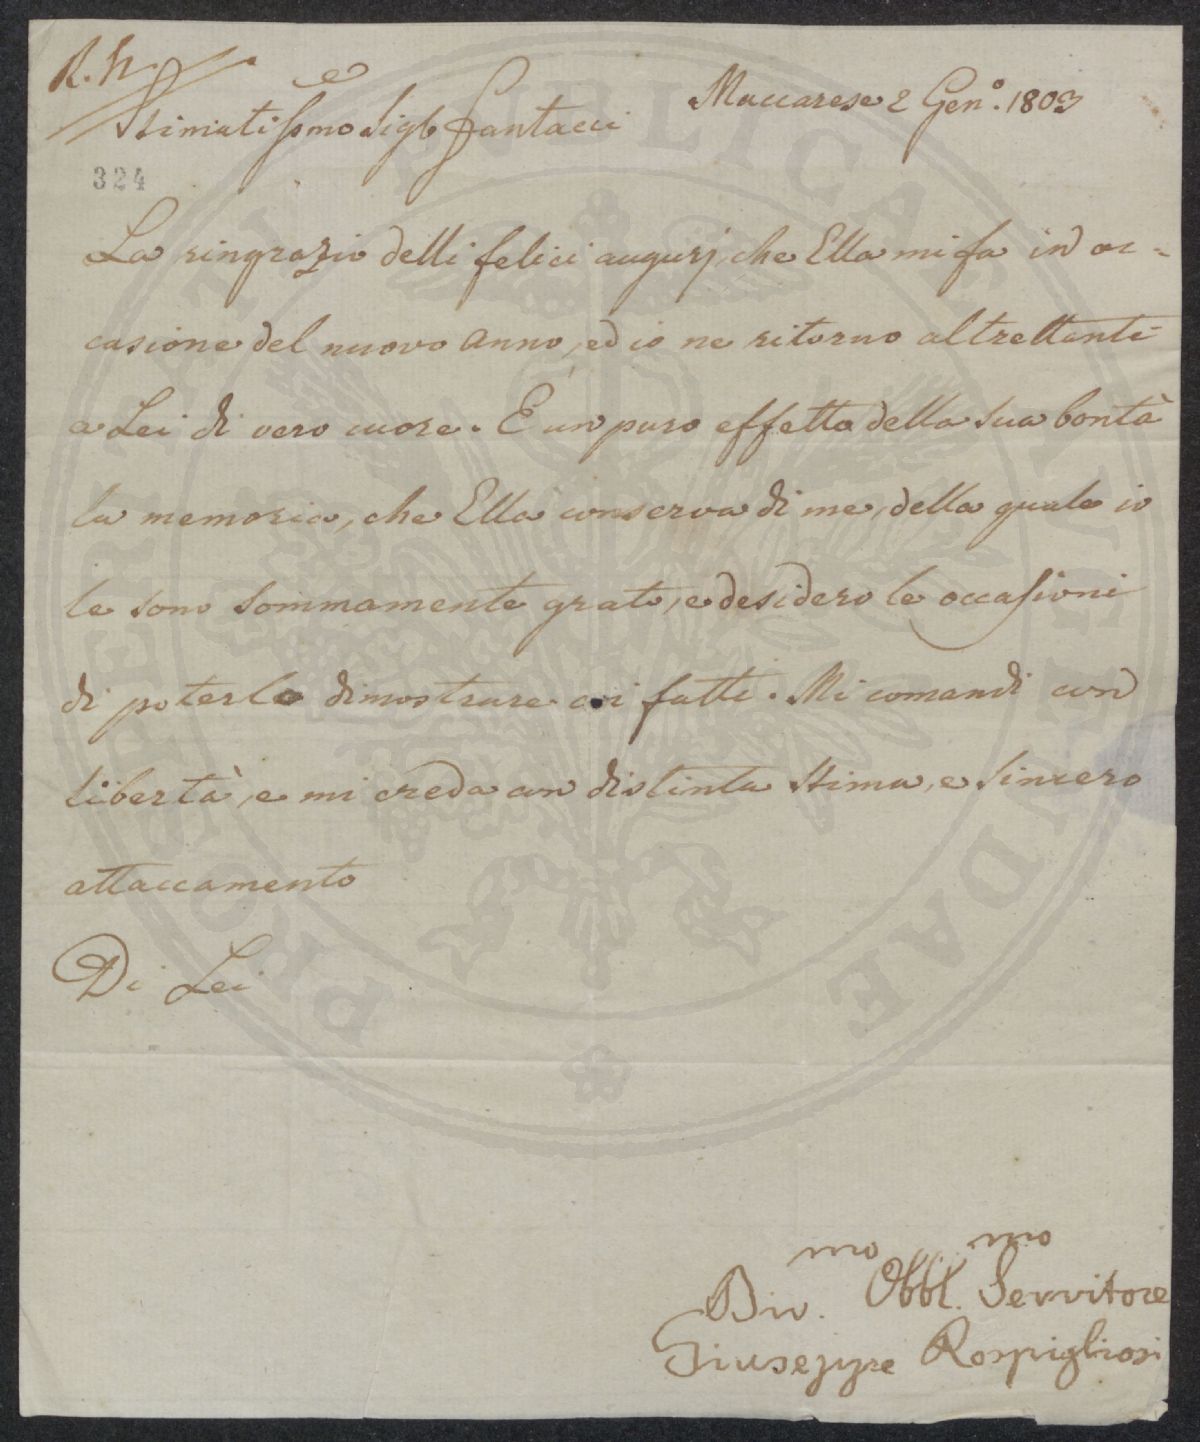 R.
Maccarese 2 Gen.º 1803
Stimatissmo Sigre Fantacci
324
La ringrazio delli felici augurj, che Ella mi fa in oc=
casione del nuovo anno, ed io ne ritorno altrettanti
a Lei di vero cuore. E un puro effetto della sua bontà
la memoria, che Ella conserva di me, della quale io
le sono sommamente grato, e desidero le occasioni
di poterlo dimostrare coi fatti. Mi comandi con
libertà, e mi creda con distinta stima, e sincero
attaccamento
Di Lei
Div.mo Obbl.mo Servitore
Giuseppe Rospigliosi